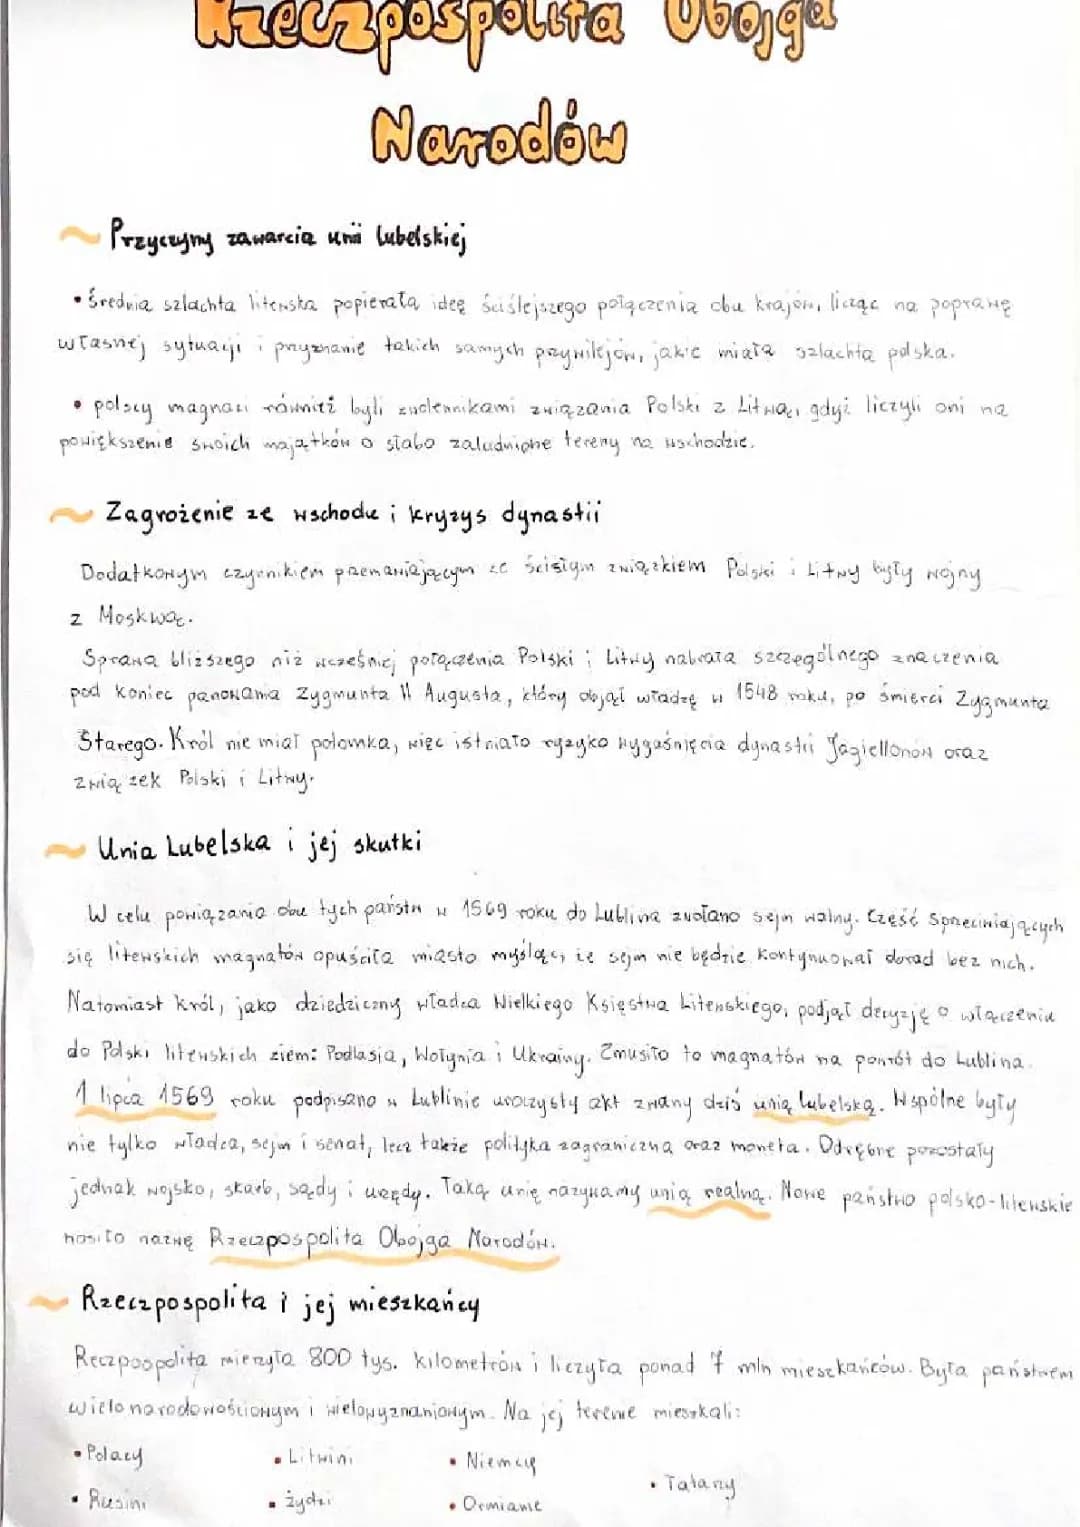 Rzeczpospolita Obojga
Narodów
~ Przyczyny zawarcia unii lubelskiej
• Średnia szlachta litewska popierała ideę ściślejszego połączenia obu krajów, licząc na poprawę
własnej sytuacji i przyznanie takich samych przywilejów, jakie miała szlachta polska.
• polscy magnaci również byli zwolennikami związania Polski z Litwą, gdyż liczyli oni na
powiększenie swoich majątków o słabo zaludnione tereny na wschodzie.
~ Zagrożenie ze wschodu i kryzys dynastii
Dodatkowym czynnikiem przemawiającym ze ścisłym związkiem Polski i Litwy były wojny
z Moskwą.
Sprawa bliższego niż wcześniej połączenia Polski i Litwy nabrała szczególnego znaczenia
pod koniec panowania Zygmunta II Augusta, który objął władzę w 1548 roku, po śmierci Zygmunta
Starego. Król nie miał potomka, więc istniało ryzyko wygaśnięcia dynastii Jagiellonów oraz
związek Polski i Litwy.
~ Unia Lubelska i jej skutki
W celu powiązania obu tych państw w 1569 roku do Lublina zwołano sejm walny. Część sprzeciwiających
się litewskich magnatów opuściła miasto myśląc, że sejm nie będzie kontynuował dorad bez nich.
Natomiast król, jako dziedziczny władca Wielkiego Księstwa Litewskiego, podjął decyzję o włączeniu
do Polski litewskich ziem: Podlasia, Wołynia i Ukrainy. Zmusiło to magnatów na powrót do Lublina.
1 lipca 1569 roku podpisano w Lublinie uroczysty akt zwany dziś unią lubelską. Wspólne były
nie tylko władca, sejm i senat, lecz także polityka zagraniczna oraz moneta. Odrębne pozostały
jednak wojsko, skarb, sądy i urzędy. Taką unię nazywamy unią realną. Nowe państwo polsko-litewskie
nosiło nazwę Rzeczpospolita Obojga Narodów.
~ Rzeczpospolita i jej mieszkańcy
Reczpospolita mierzyła 800 tys. kilometrów i liczyła ponad 7 mln mieszkańców. Była państwem
wielonarodowościowym i wielowyznaniowym. Na jej terenie mieszkali:
• Polacy • Litwini • Niemcy • Tatarzy
• Rusini • żydzi • Ormianie